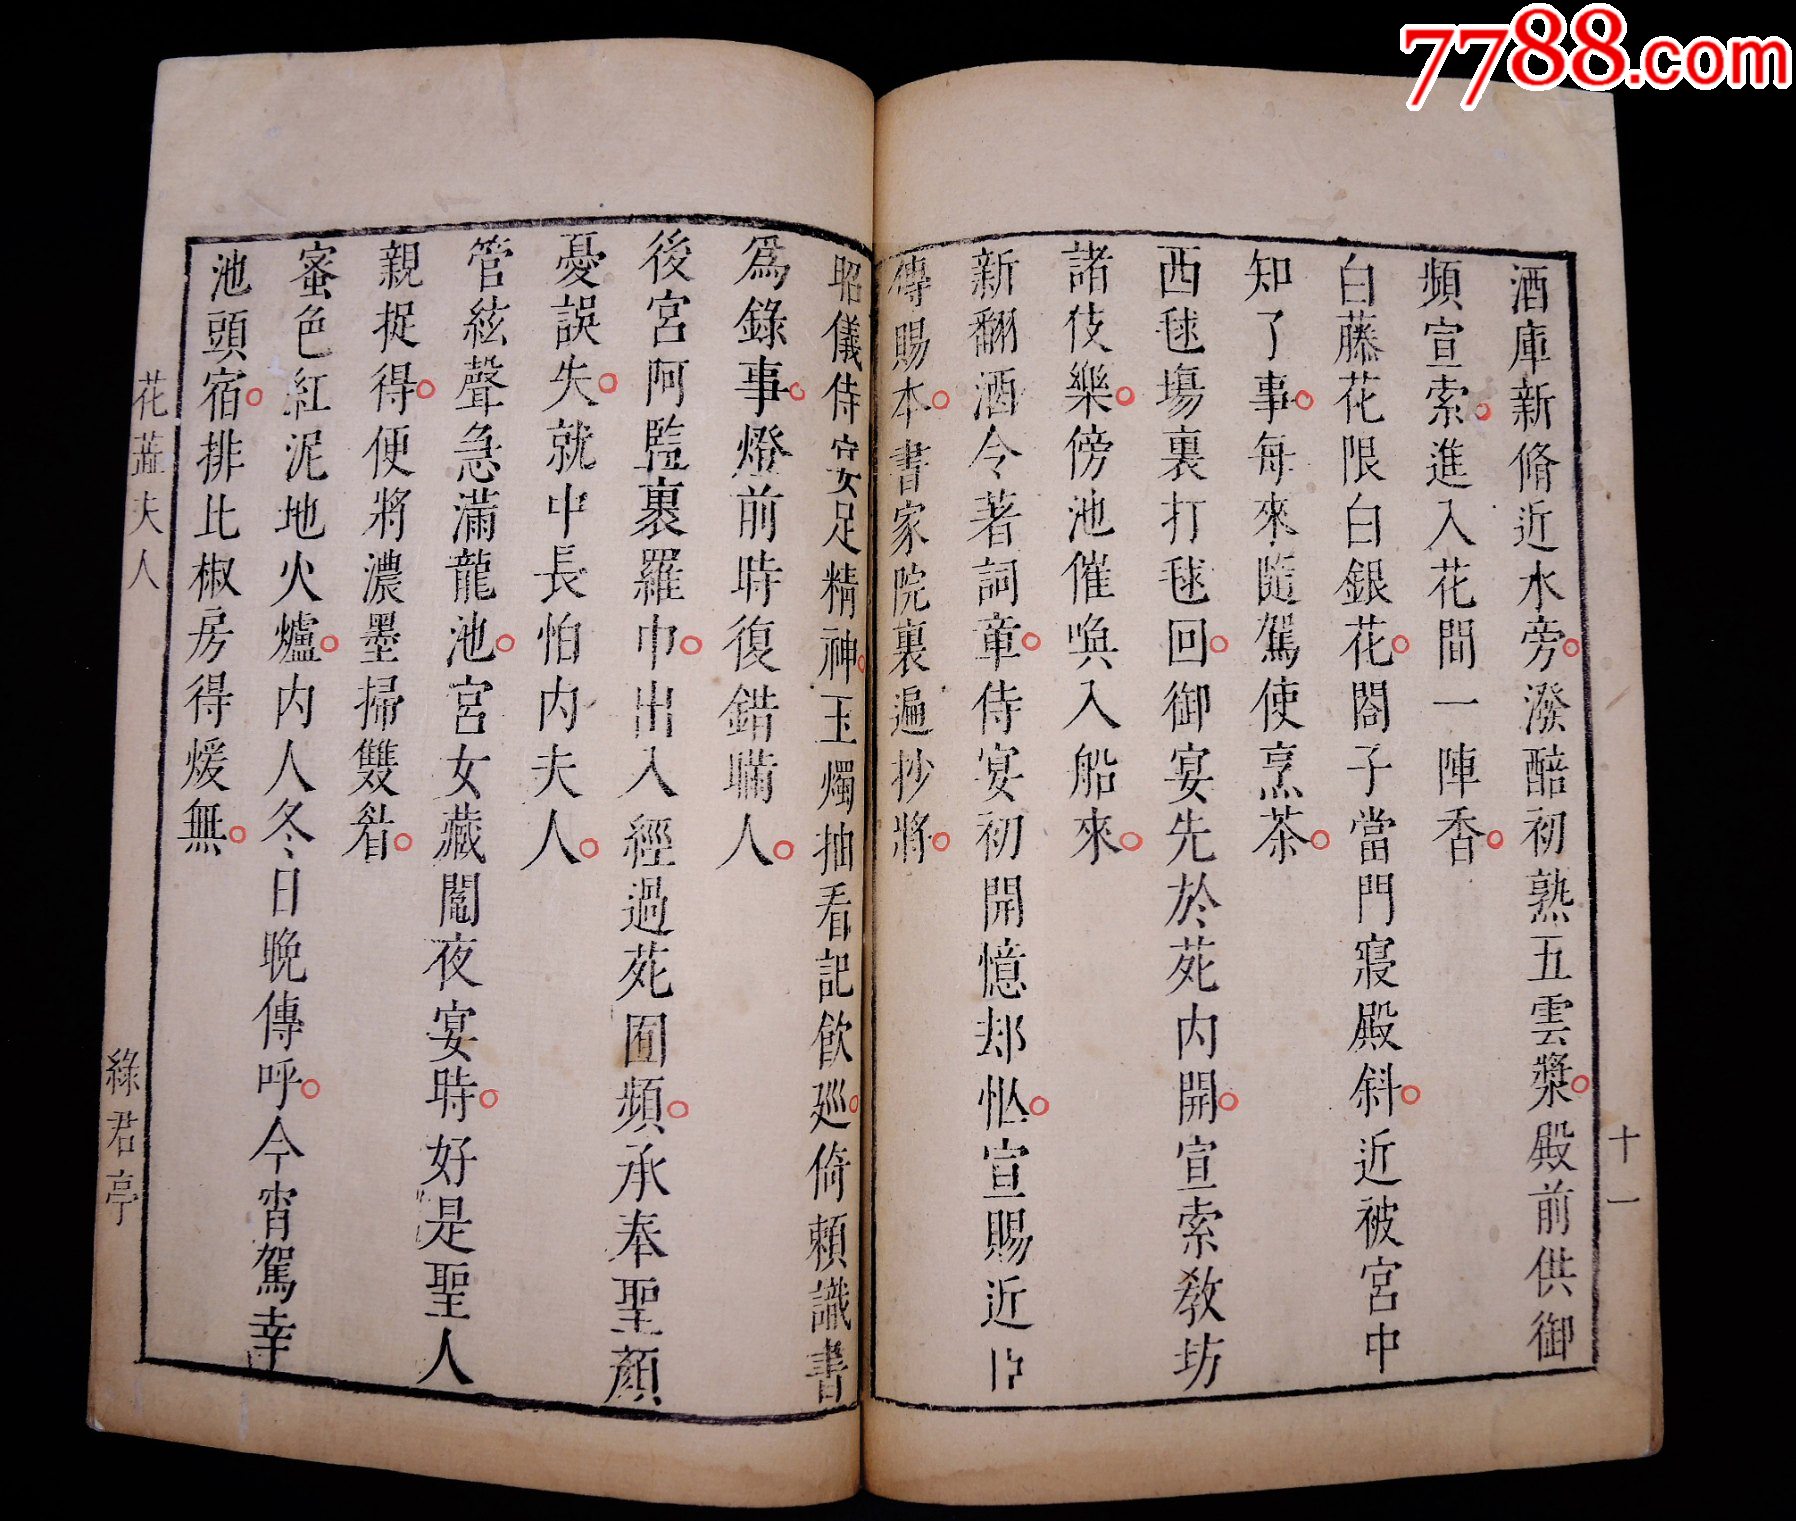 7788.com
酒庫新脩近水旁潑醅初熟五雲漿殿前供御
頻宣索進入花間一陣香
白藤花限白銀花閤子當門寢殿斜近被宮中
知了事每來隨駕使烹茶
西毬場裏打毬回御宴先於苑内開宣索教坊
諸伎樂傍池催喚入船來
新翻酒令著詞章侍宴初開憶却忙宣賜近臣
傳賜本書家院裏遍抄將
十一
昭儀侍宴足精神玉燭抽看記飲廵倚賴識書
爲錄事燈前時復錯瞞人
後宮阿監裹羅巾出入經過苑囿頻承奉聖顏
憂誤失就中長怕内夫人
管絃聲急滿龍池宮女藏鬮夜宴時好是聖人
親捉得便將濃墨掃雙眉
蜜色紅泥地火爐内人冬日晚傳呼今宵駕幸
池頭宿排比椒房得煖無
花蕊夫人
綠君亭